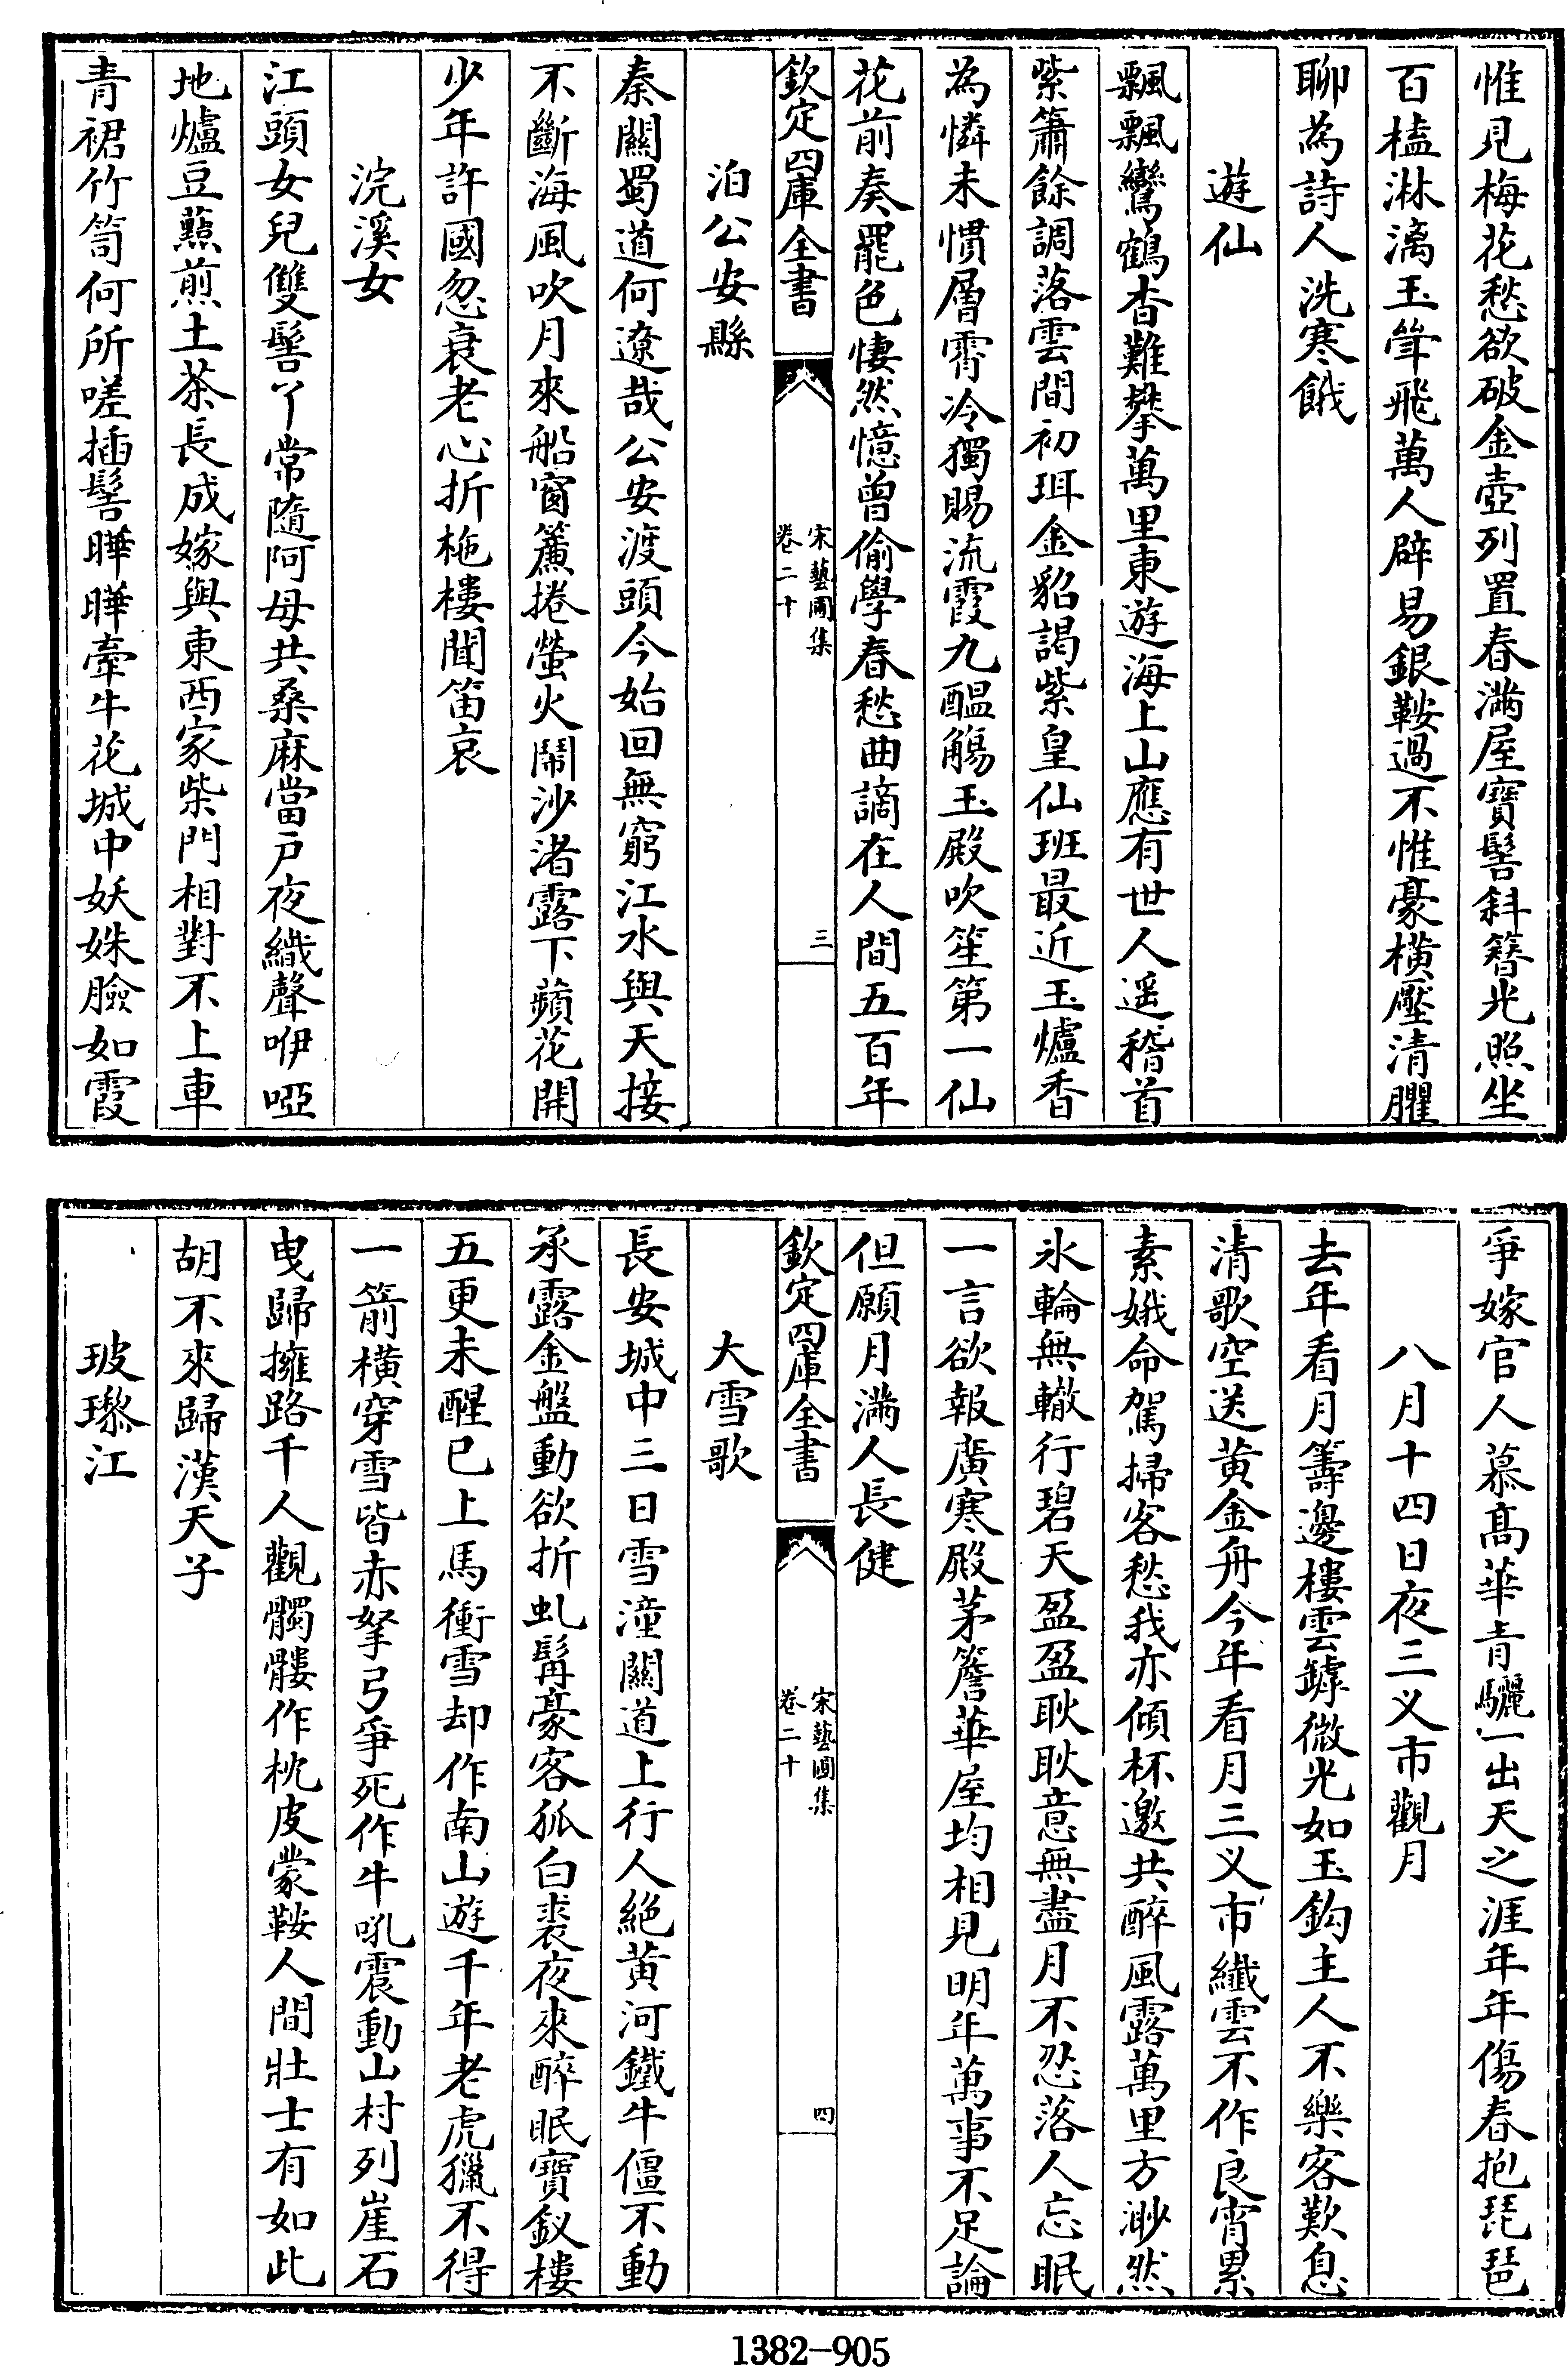 惟見梅花愁欲破金壺列置春滿屋寶髻斜簪光照坐
百榼淋漓玉斝飛萬人辟易銀鞍過不惟豪橫壓清臞
聊為詩人洗寒餓
遊仙
飄飄鸞鶴杳難攀萬里東遊海上山應有世人遥稽首
紫簫餘調落雲間初珥金貂謁紫皇仙班最近玉爐香
為憐未慣層霄冷獨賜流霞九醖觴玉殿吹笙第一仙
花前奏罷色悽然憶曾偷學春愁曲謫在人間五百年
欽定四庫全書
宋藝圃集
卷二十
三
泊公安縣
秦關蜀道何遼哉公安渡頭今始回無窮江水與天接
不斷海風吹月來船窗簾捲螢火鬧沙渚露下蘋花開
少年許國忽衰老心折柂樓聞笛哀
浣溪女
江頭女兒雙髻丫常隨阿母共桑麻當戶夜織聲咿啞
地爐豆䕸煎土茶長成嫁與東西家柴門相對不上車
青裙竹笥何所嗟插髻曄曄牽牛花城中妖姝臉如霞
爭嫁官人慕髙華青驪一出天之涯年年傷春抱琵琶
八月十四日夜三义市觀月
去年看月籌邊樓雲罅微光如玉鈎主人不樂客歎息
清歌空送黄金舟今年看月三义市纖雲不作良宵累
素娥命駕掃客愁我亦傾杯邀共醉風露萬里方渺然
氷輪無轍行碧天盈盈耿耿意無盡月不忍落人忘眠
一言欲報廣寒殿茅簷華屋均相見明年萬事不足論
但願月滿人長健
欽定四庫全書
宋藝圃集
卷二十
四
大雪歌
長安城中三日雪潼關道上行人絕黄河鐵牛僵不動
承露金盤動欲折虬髯豪客狐白裘夜來醉眠寶釵樓
五更未醒已上馬衝雪却作南山遊千年老虎獵不得
一箭橫穿雪皆赤拏弓爭死作牛吼震動山村列崖石
曳歸擁路千人觀髑髏作枕皮蒙鞍人間壯士有如此
胡不來歸漢天子
玻瓈江
1382-905